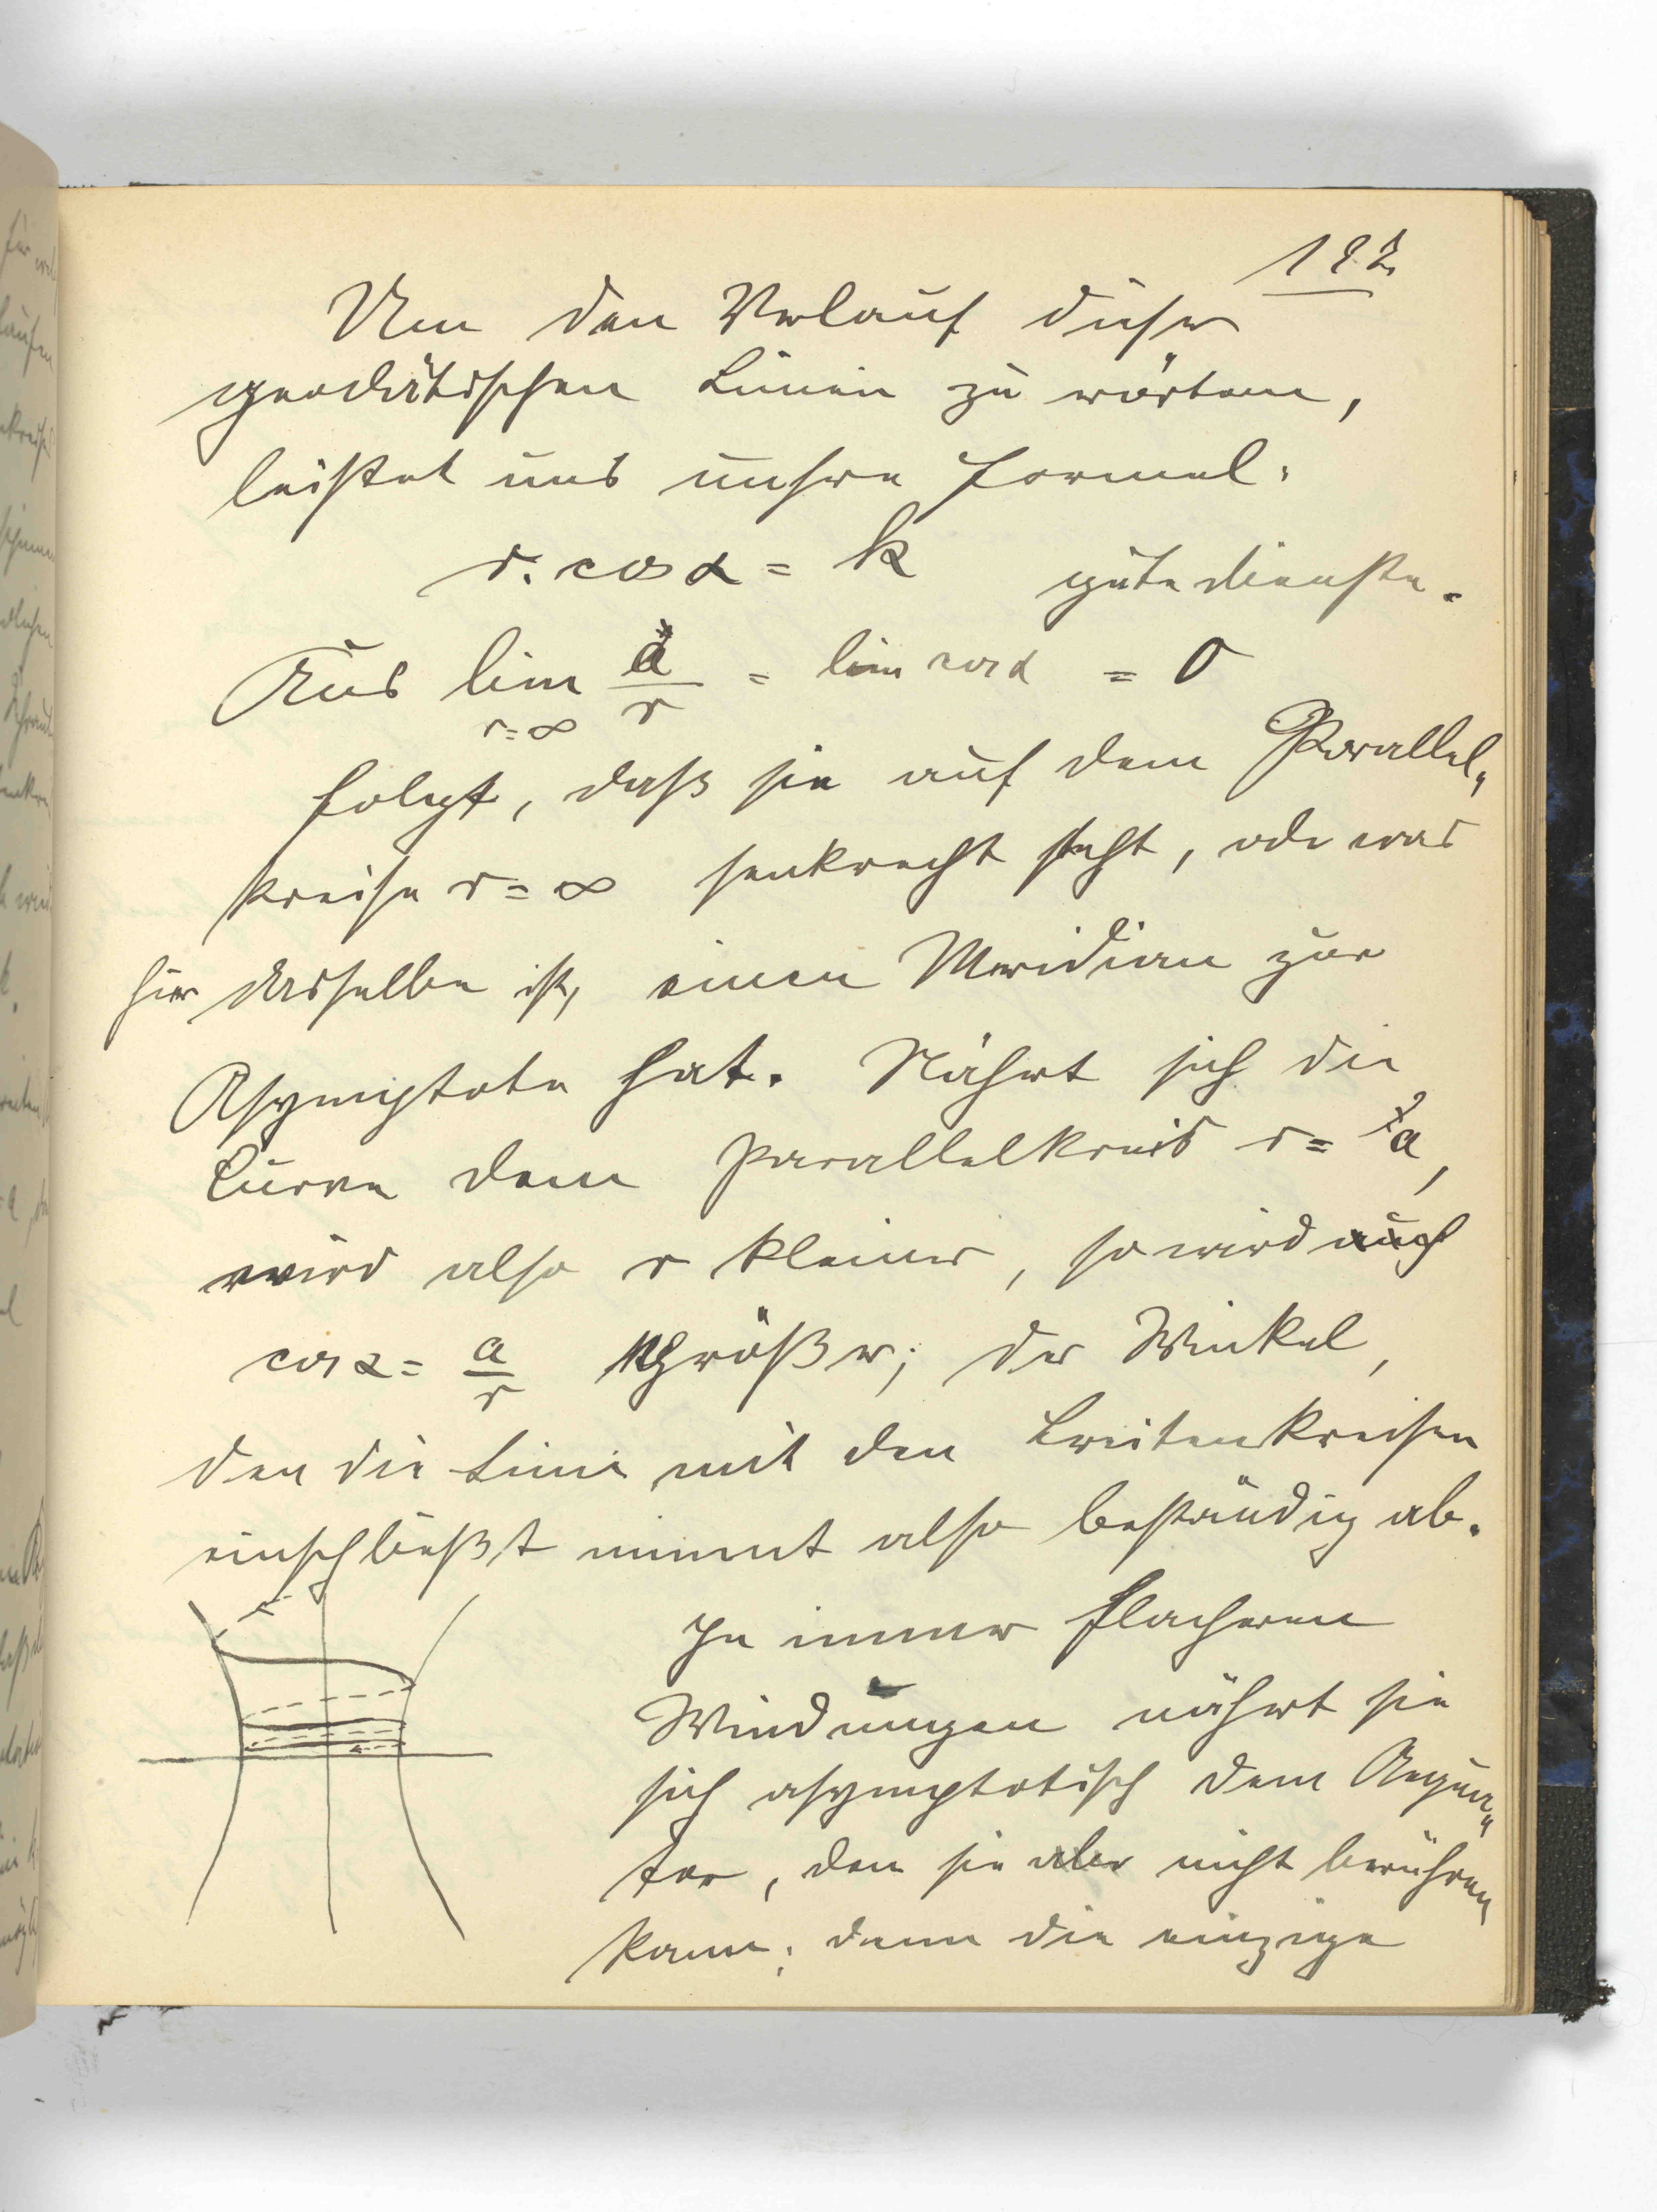 Um den Verlauf dieser
geodätischen Linien zu erörtern,
leistet uns unsere Formel:
r. cos α = k gute Dienste.
Aus lim a/r = lim cos α = 0
r=∞
folgt, daß sie auf dem Parallel„
kreise r = ∞ senkrecht steht, oder was
hier dasselbe ist, einen Meridian zur
Asymptote hat. Nähert sich die
Curve dem Parallelkreis r = a,
wird also r kleiner, so wird auch
cos α = a/r größer; der Winkel,
den die Linie mit den Breitenkreisen
einschließt nimmt also beständig ab.
In immer flacheren
Windungen nähert sie
sich asymptotisch dem Aequa„
tor, den sie aber nicht berühren
kann; denn die einzige